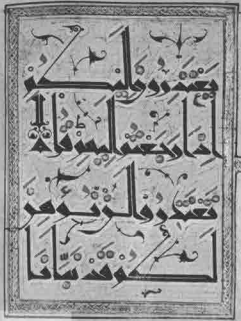 يعتذرون إليكم
إذا رجعتم إليهم قل لا
تعتذروا لن نؤمن
لكم قد نبأنا